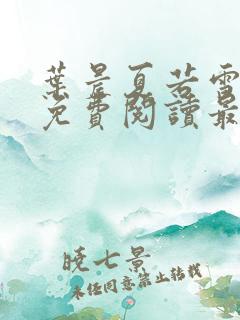 葉晨夏若雪
免費閱讀最
曉七景
未经同意禁止转载